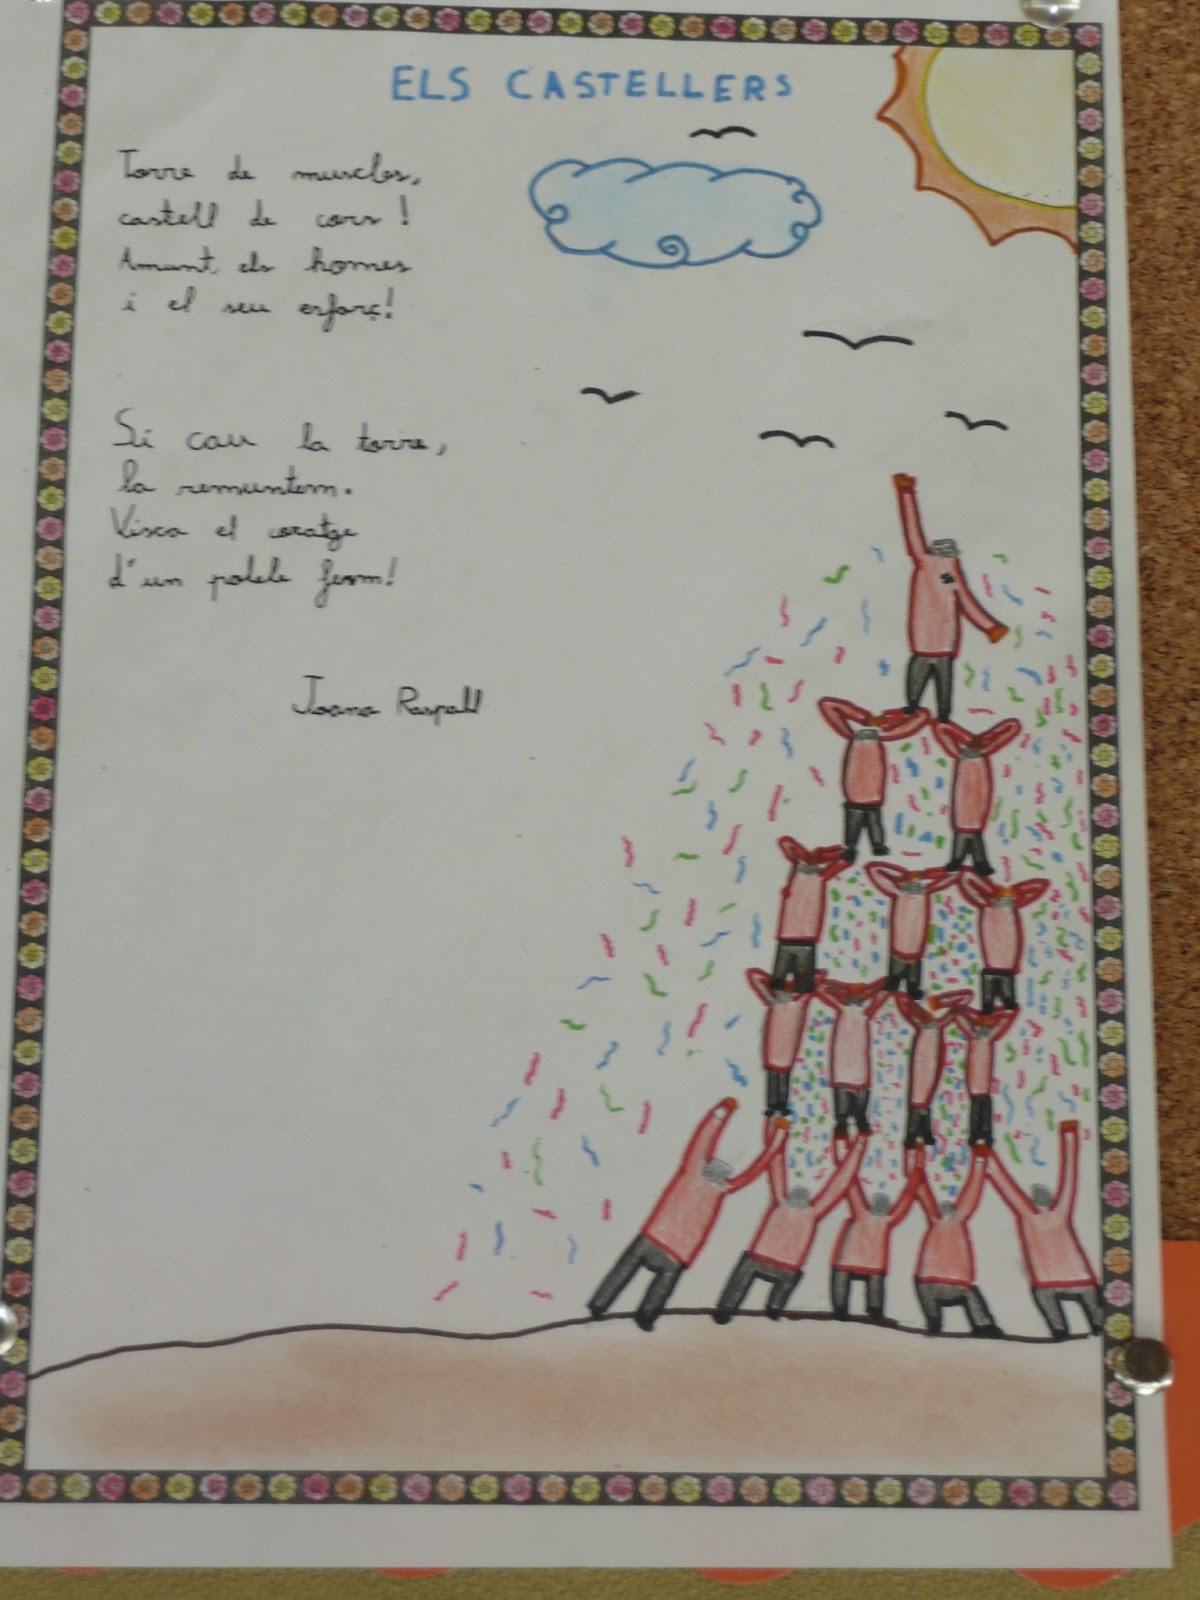 ELS CASTELLERS
Torre de muscles,
castell de cors!
Amunt, els homes
i el seu esforç!
Si cau la torre,
la remuntem.
Visca el coratge
d'un poble ferm!
Joana Raspall